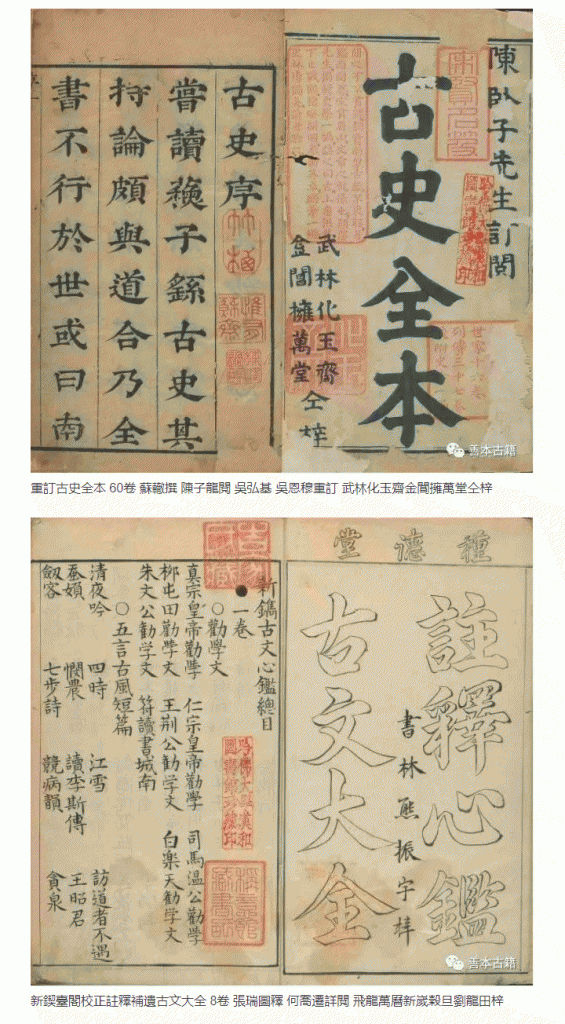 陳臥子先生訂閱
古史全本
武林化玉齋
金閶擁萬堂仝梓
古史序
嘗讀蘇子繇古史其
持論頗與道合乃全
書不行於世或曰南
善本古籍
重訂古史全本 60卷 蘇轍撰 陳子龍閱 吳弘基 吳恩穆重訂 武林化玉齋金閶擁萬堂仝梓
種德堂
註釋心鑑
書林熊振宇梓
古文大全
新鐫古文心鑑總目
一卷
○勸學文
真宗皇帝勸學 仁宗皇帝勸學 司馬溫公勸學
柳屯田勸學文 王荊公勸学文 白楽天勸学文
朱文公勸学文 符讀書城南
○五言古風短篇
清夜吟 四時 江雪 訪道者不遇
蚕婦 憫農 讀李斯傳 王昭君
劔客 七步詩 競病韻 貪泉
善本古籍
新鍥臺閣校正註釋補遺古文大全 8卷 張瑞圖釋 何喬遷詳閱 飛龍萬曆新嵗穀旦劉龍田梓